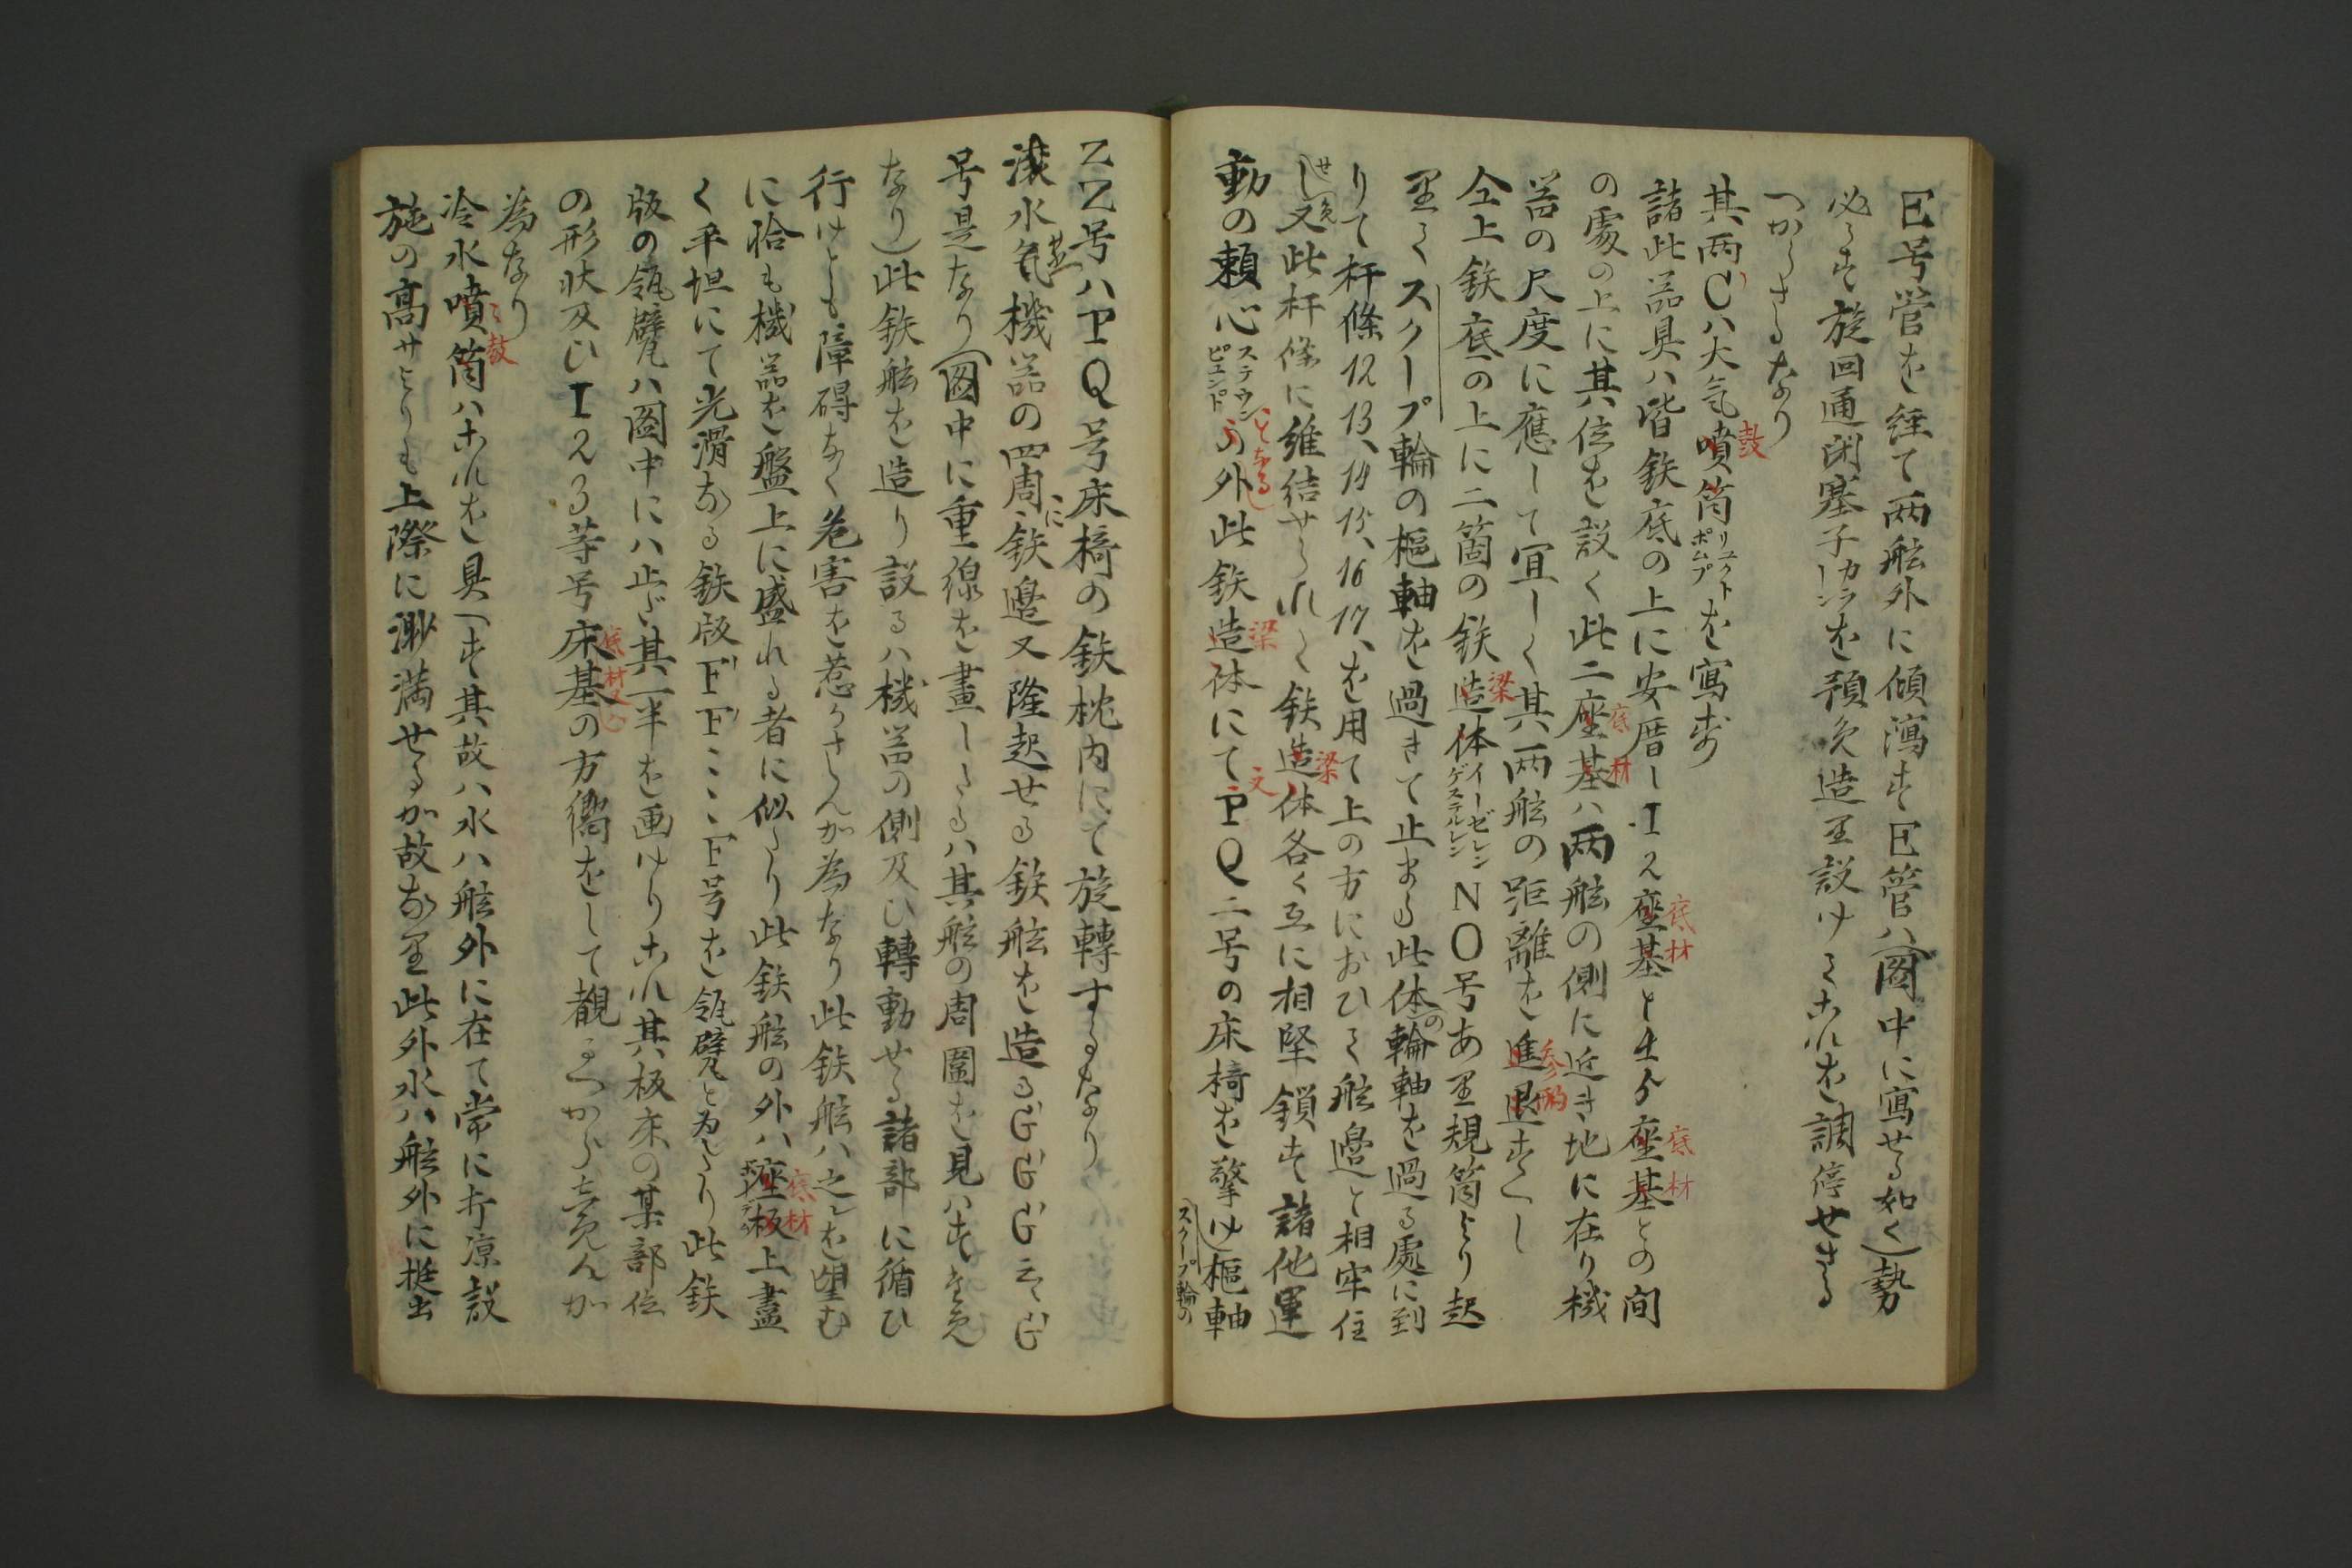 E号管を経て両舷外に傾瀉すE管ハ(圖中に寫せる如く)勢
必らす旋回通閉塞子カラーンを預め造里設けてこれを調停せさる
へからさるなり
其両Cハ大気噴筒リュクトポムプを寫す
鼓
諸此器具ハ皆鉄底の上に安厝しI 2座基と4 5座基との間
底材
底材
の處の上に其位を設く此二座基ハ両舷の側に近き地に在り機
底材
器の尺度に應して宜しく其両舷の距離を進退すへし
参酌
仝上鉄底の上に二箇の鉄造体イーゼレンゲステルレンNO号あ里規筒より起
梁
里てスクープ輪の樞軸を過きて止まる此体の輪軸を過る處に到
りて杆條12 13、14 15、16 17、を用て上の方におひて舷邉と相牢住
せしめ又此杆條に維結せられて鉄造体各く互に相堅鎖す諸他運
梁
動の頼心ステウンピュンドの外此鉄造体にてPQ二号の床椅を擎け樞軸
となる
梁
又
スクープ輪の
ZZ号ハPQ号床椅の鉄枕内にて旋轉するなり
滾水気機器の四周に鉄邉又隆起せる鉄舷を造るGGGG
蒸
号是なり(圖中に重線を畫したるハ其舷の周圍を見ハす
なり)此鉄舷を造り設るハ機器の側及ひ轉動せる諸部に循ひ
行けとも障碍なく危害を惹かさらんか為なり此鉄舷ハ之を望む
に恰も機器を盤上に盛れる者に似たり此鉄舷の外ハ座板上盡
底材
く平坦にて光滑なる鉄版FF〻〻F号を瓴甓と為したり此鉄
版の瓴甓ハ圖中にハ止ゞ其一半を画けりこれ其板床の某部位
の形状及ひI 2 3等号床基の方嚮をして覩るへからしめんか
底材
為なり
冷水噴筒ハこれを具へす其故ハ水ハ舷外に在て常に打凉設
鼓
施の高サよりも上際に渺満せるか故な里此外水ハ舷外に挺出